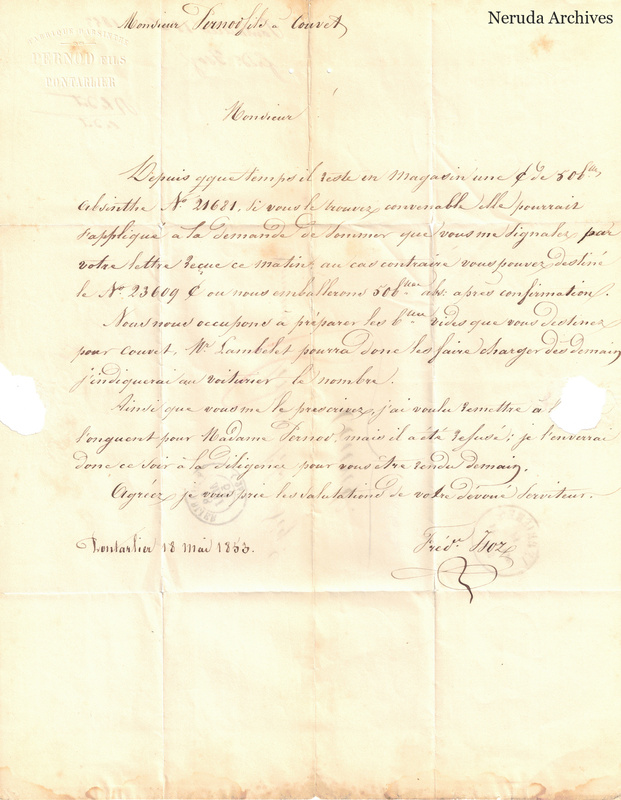 Neruda Archives
Monsieur Pernod fils à Couvet
FABRIQUE D'ABSINTHE
PERNOD FILS
PONTARLIER
Monsieur
Depuis qque temps il reste en magasin une de 50 blles
absinthe No 21681, si vous le trouvez convenable elle pourrait
s'appliqué à la demande de Sommer que vous me signalez par
votre lettre reçue ce matin, au cas contraire vous pouvez destiné
le No 23609 ou nous emballerons 50 blles abs. après confirmation.
Nous nous occupons à préparer les vides que vous destinez
pour Couvet, Mr Lambelet pourra donc les faire charger dès demain
j'indiquerai au voiturier le nombre.
Ainsi que vous me le prescrivez, j'ai voulu remettre à l
l'onguent pour Madame Pernod, mais il a été refusé; je l'enverrai
donc ce soir à la diligence pour vous être rendu demain.
Agréez je vous prie les salutations de votre dévoué serviteur.
Pontarlier 18 Mai 1853.
Fréd.